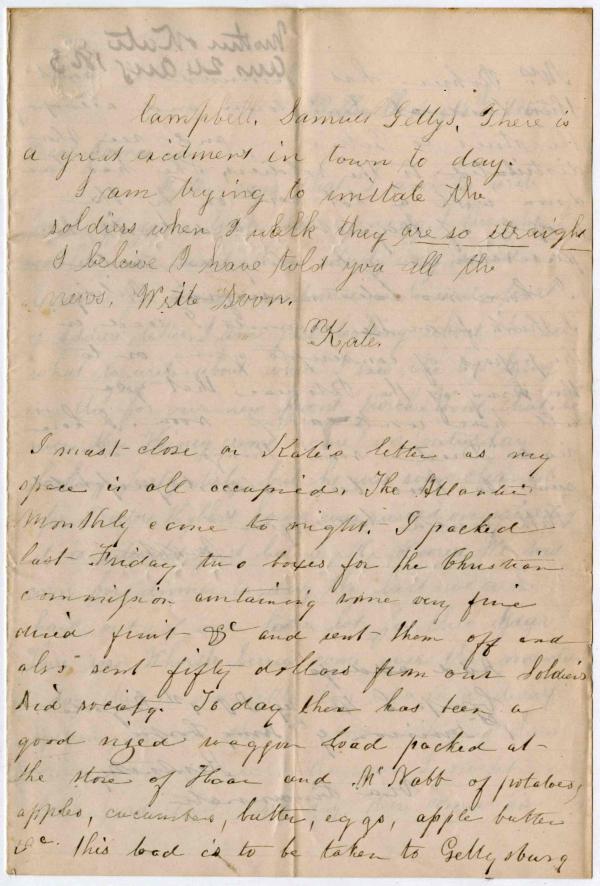 Campbell, Samuel Gettys. There is
a great excitment in town to day.
I am trying to imitate the
soldiers when I walk they are so straight
I beleive I have told you all the
news. Write Soon.
Kate.
I must close on Kate's letter as my
space is all occupied. The Atlantic
Monthly came to night. I packed
last Friday two boxes for the Christian
commission containing some very fine
dried fruit &c and sent them off and
also sent fifty dollars from our Soldiers
Aid society. To day there has been a
good sized waggon load packed at
the store of Haar and McNabb of potatoes,
apples, cucumbers, butter, eggs, apple butter
&c this load is to be taken to Gettysburg